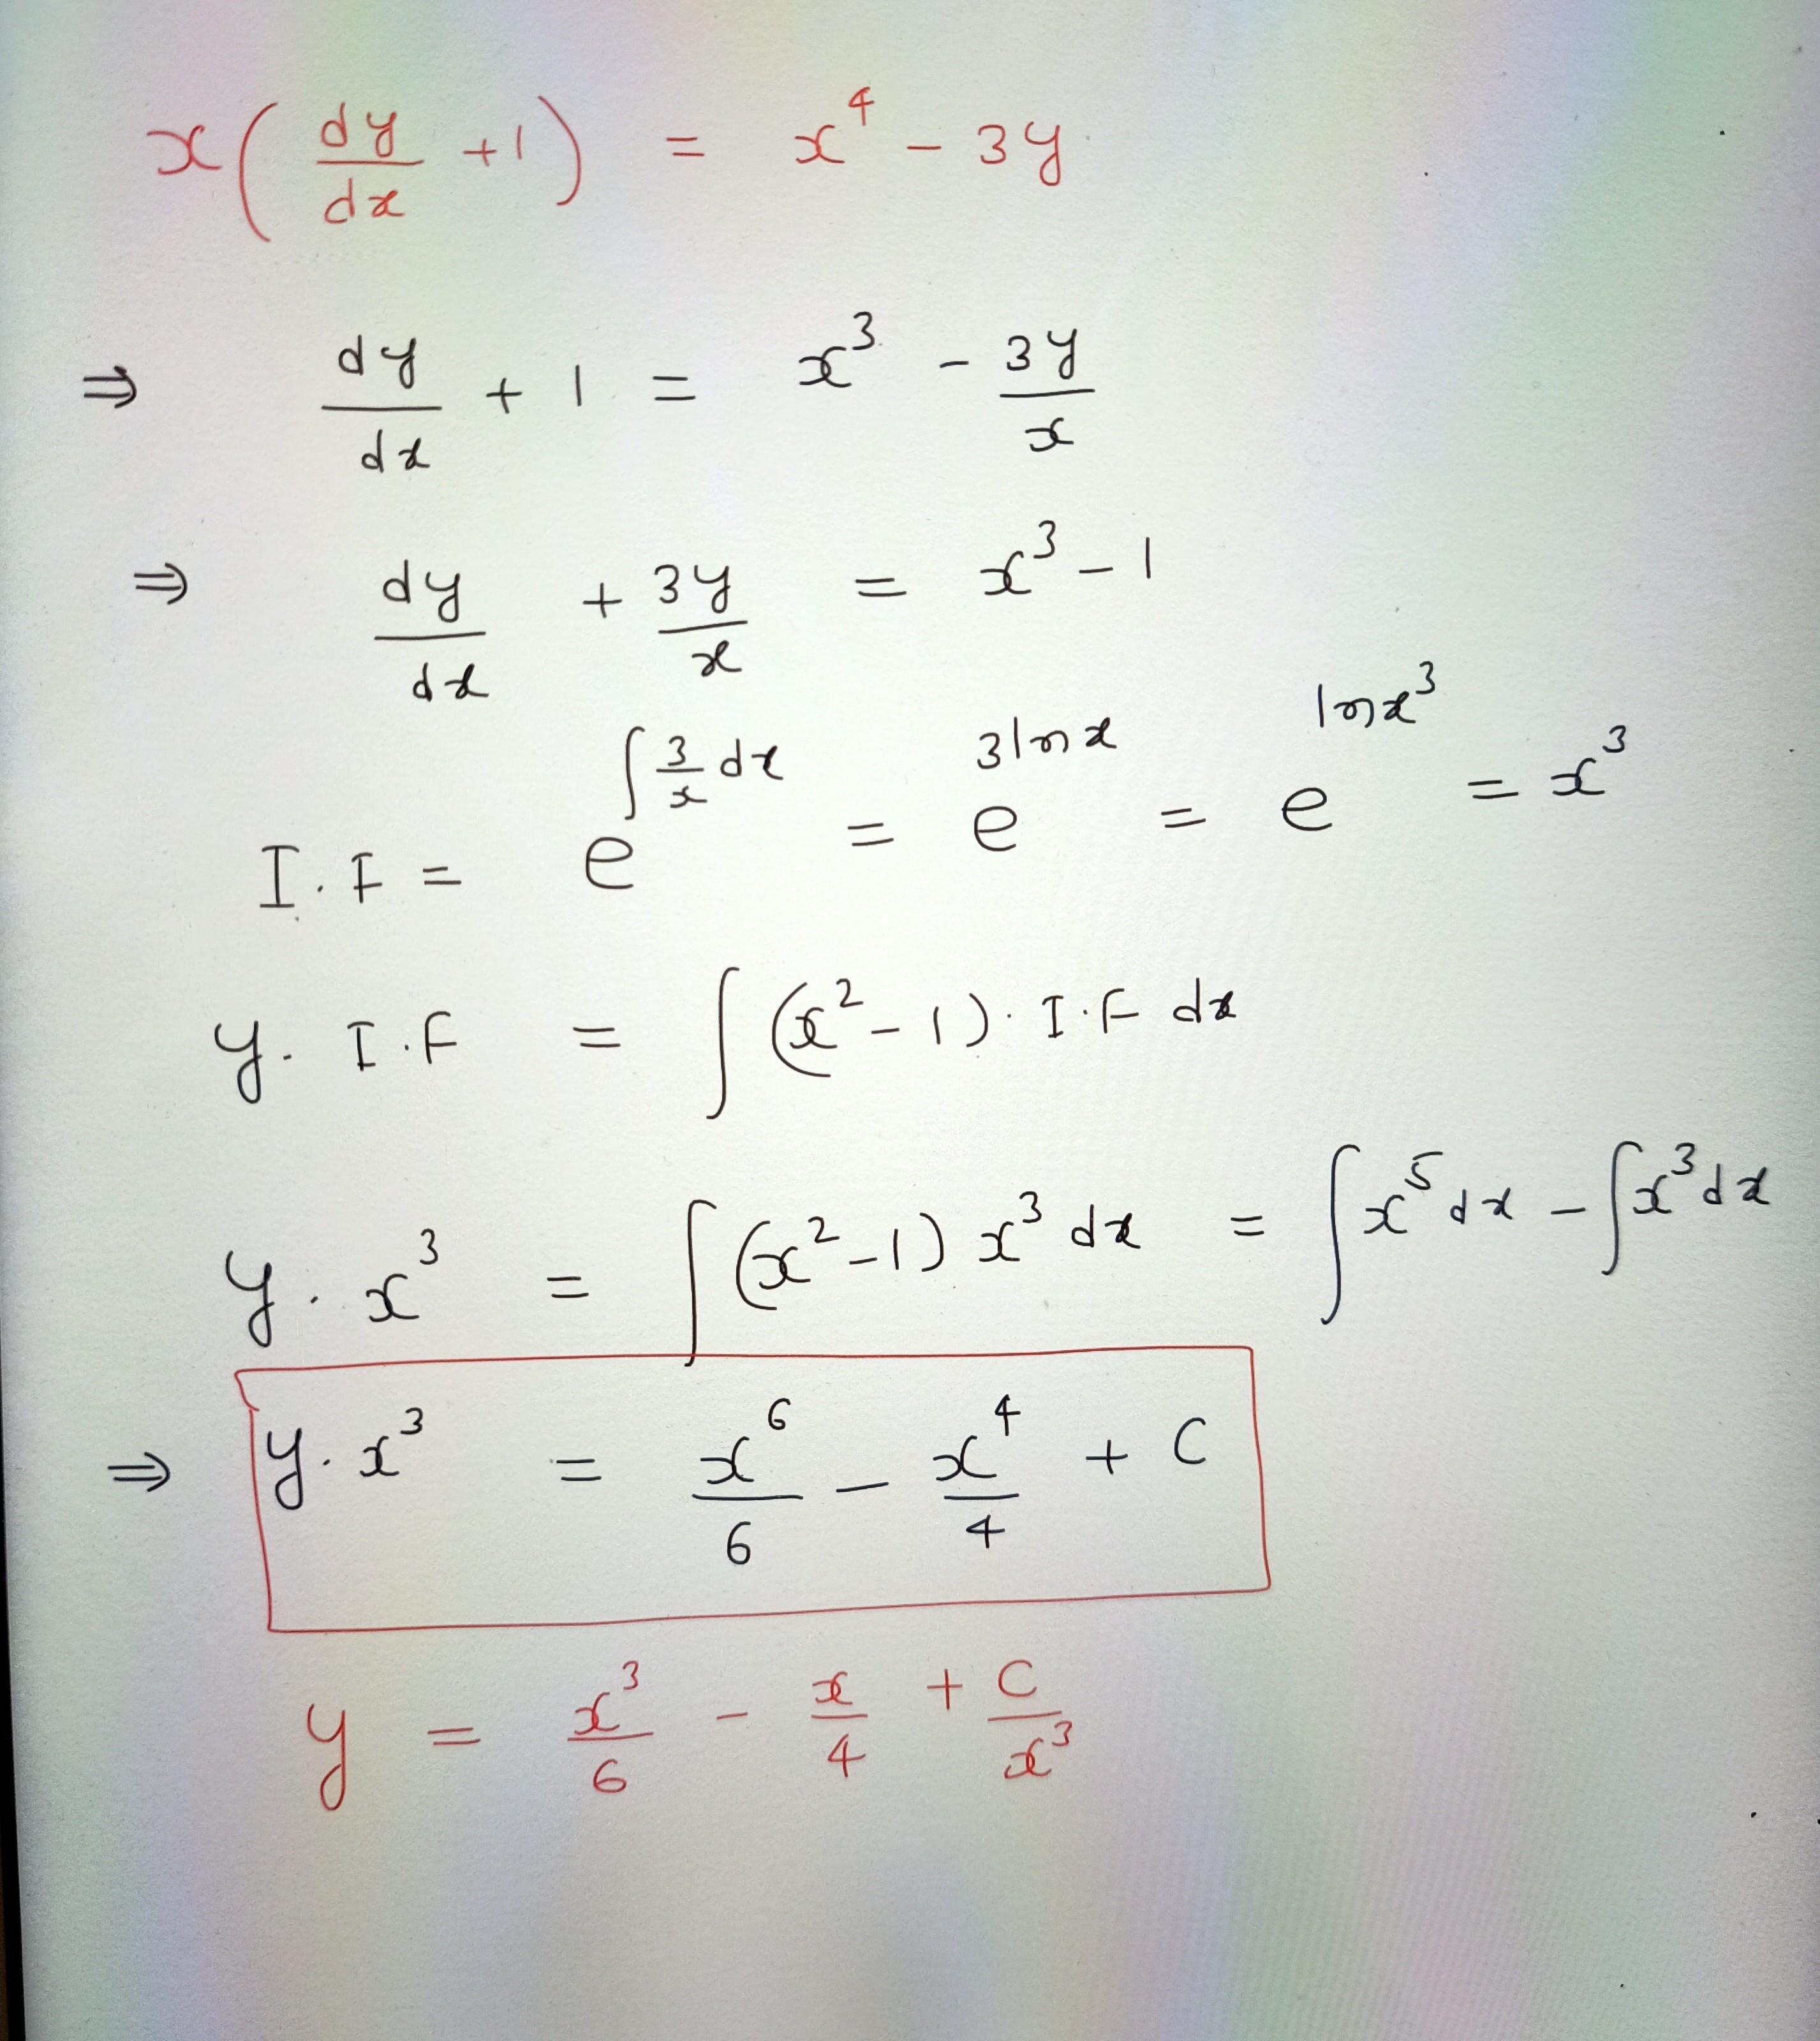 x(dy/dx +1) = x⁴ - 3y
⇒ dy/dx + 1 = x³ - 3y/x
⇒ dy/dx + 3y/x = x³ - 1
I.F = e^(∫ 3/x dx) = e^(3lnx) = e^(lnx³) = x³
y. I.F = ∫ (x² - 1). I.F dx
y. x³ = ∫ (x² - 1) x³ dx = ∫ x⁵ dx - ∫ x³ dx
⇒ y. x³ = x⁶/6 - x⁴/4 + C
y = x³/6 - x/4 + C/x³